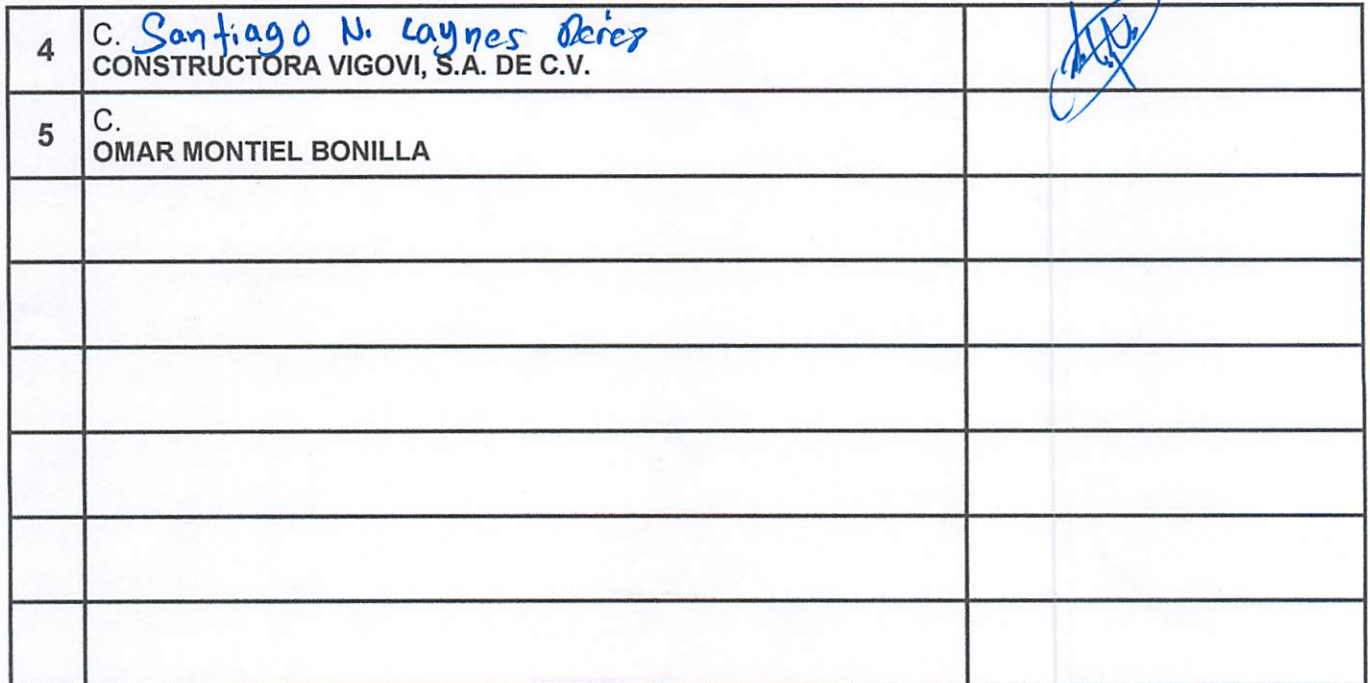 4
C. Santiago N. Laynes Pérez
CONSTRUCTORA VIGOVI, S.A. DE C.V.
5
C.
OMAR MONTIEL BONILLA